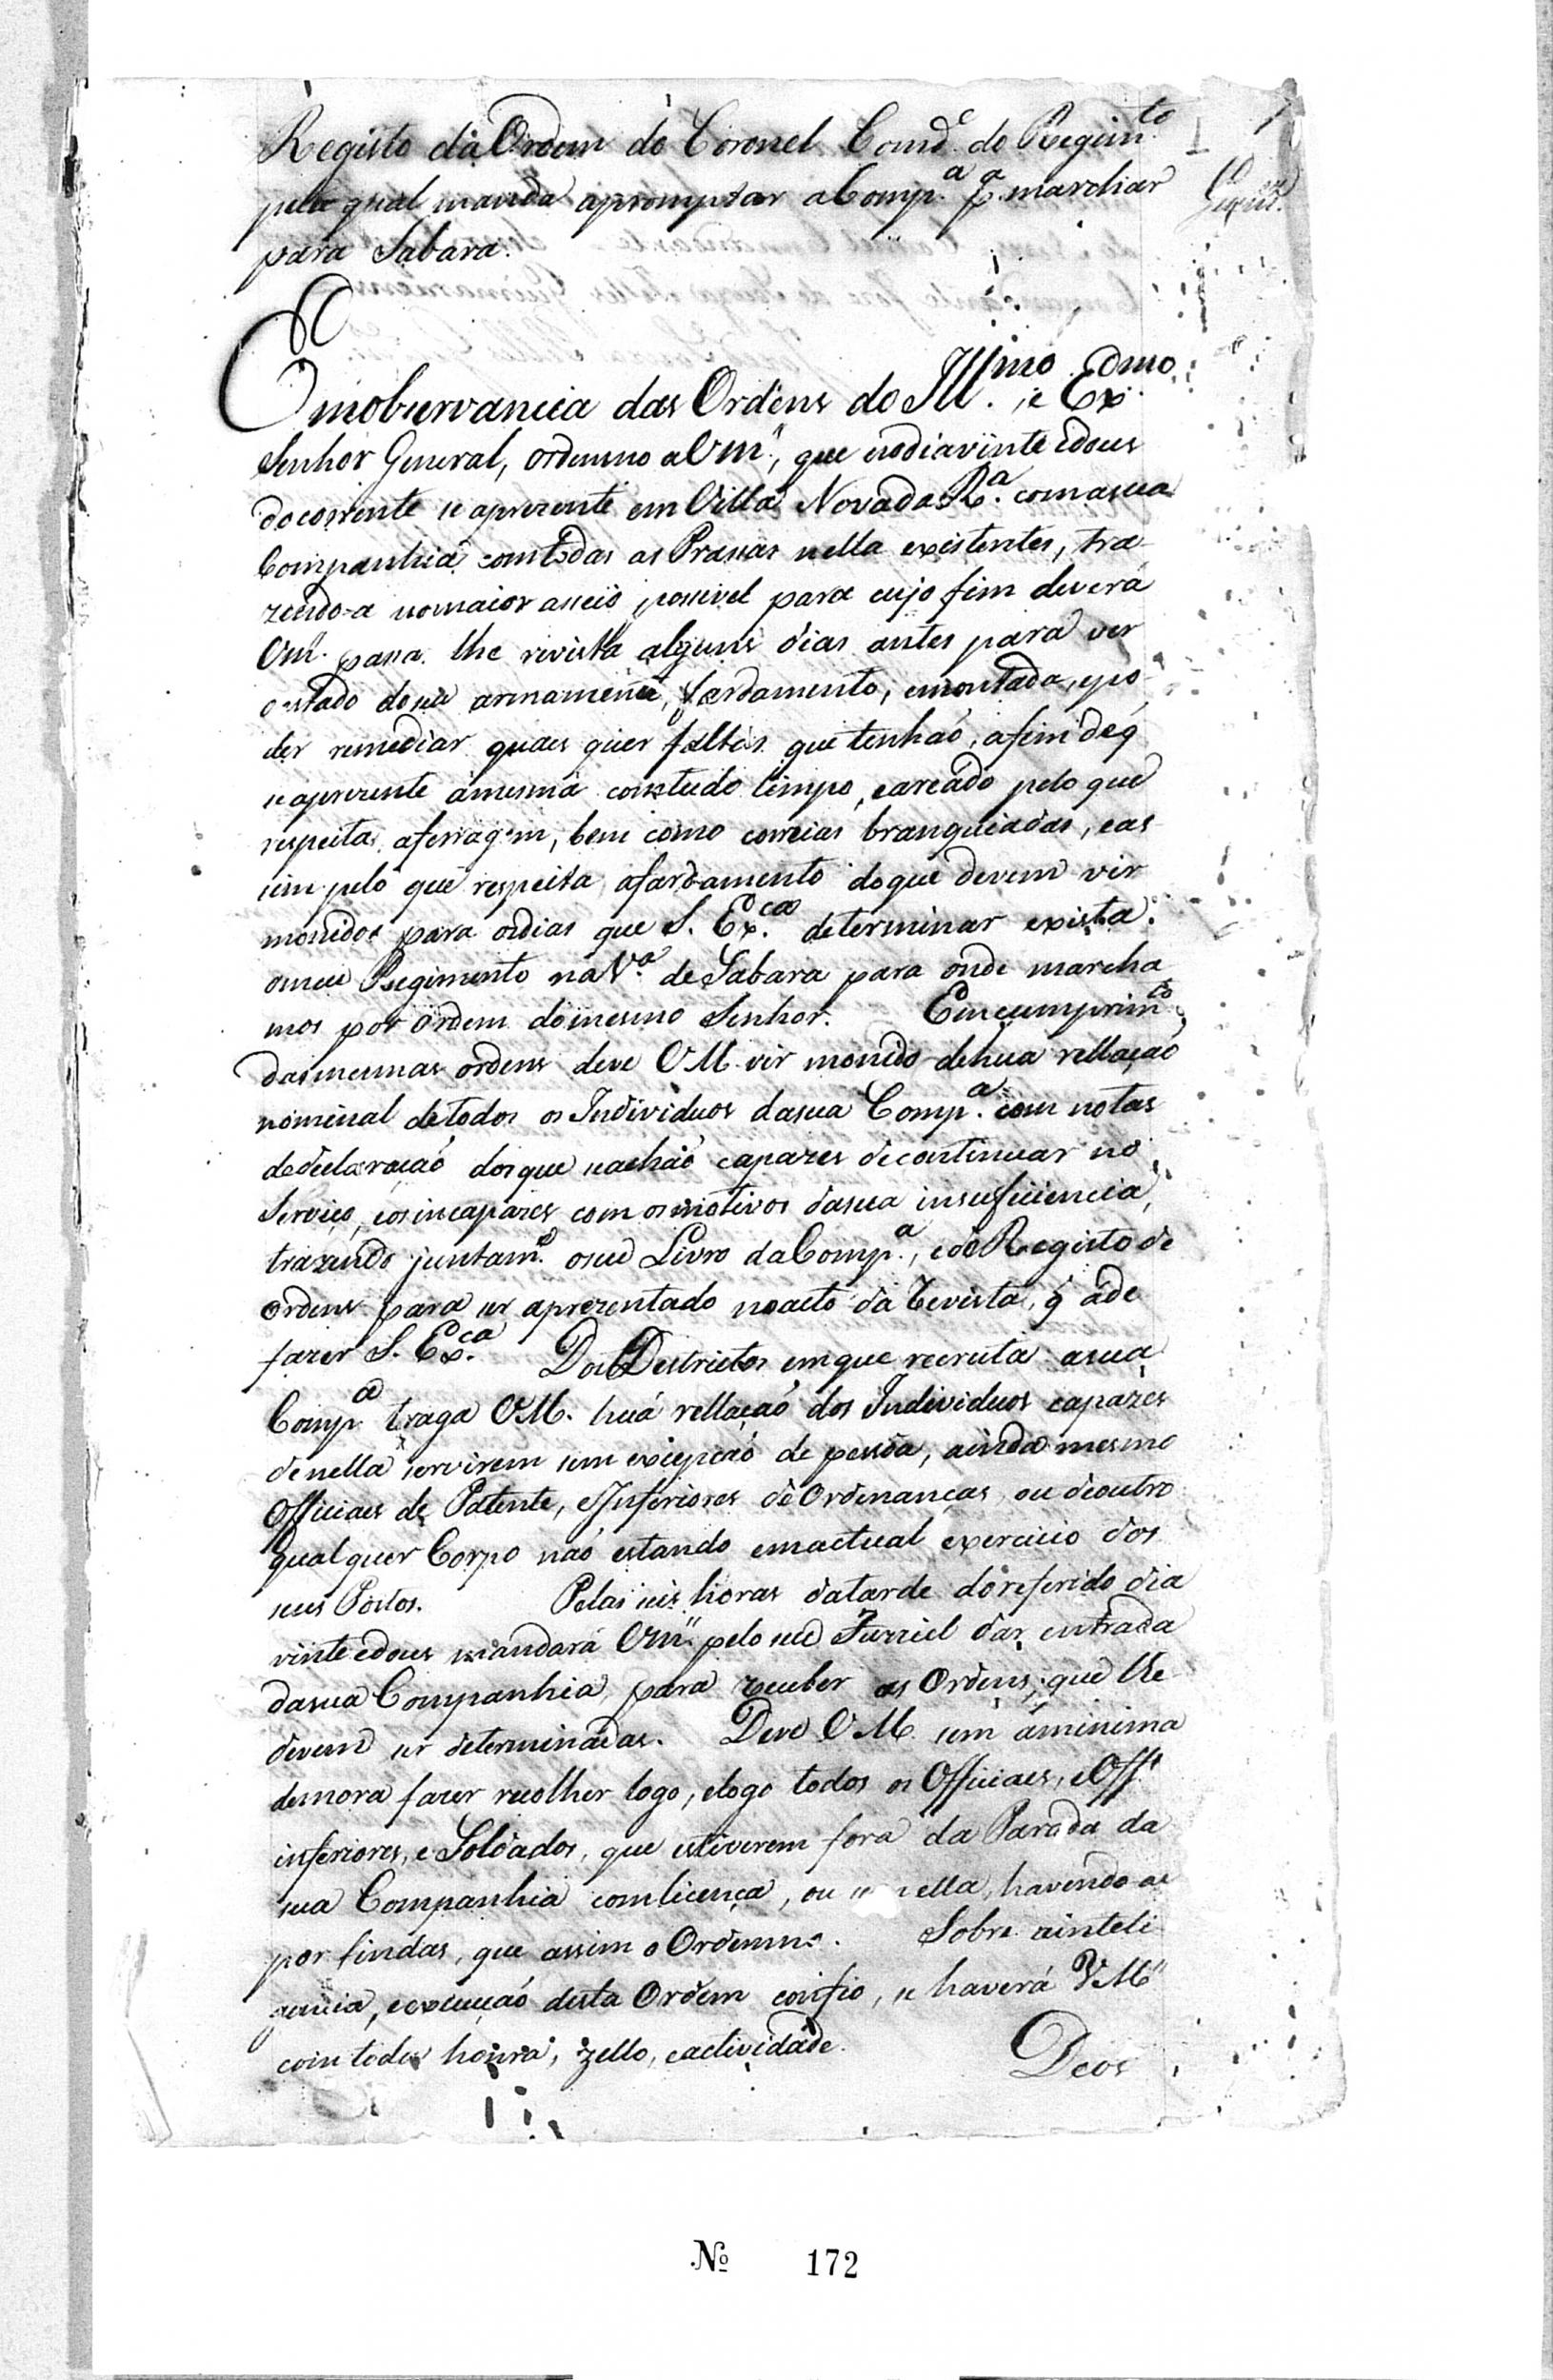 Registo da Ordem do Coronel Comd.e do Regim.to
pela qual manda apromptar a Comp.a p.a marchar
para Sabara.
1
Em observancia das Ordens do Ill.mo e Ex.mo
Senhor General, ordenno a Vm.ce, que no dia vinte e dous
do corrente se aprezente em Villa Nova da R.a com a sua
Companhia com todas as Prassas nella existentes, tra-
zendo-a no maior asseio possivel para cujo fim deverá
Vm.ce passar lhe revista alguns dias antes para ver
o estado do seu armamento, fardamento, e montada, e po-
der remediar quaes quer faltas que tenhaó, afim de q
se aprezente a mesma com tudo limpo, e areado pelo que
respeita a ferragem, bem como correias branqueadas, e as-
sim pelo que respeita a fardamento do que devem vir
monidos para os dias que S. Ex.ca determinar exista
o meu Regimento na V.a de Sabara para onde marcha
mos por ordem do mesmo Senhor. Em cumprim.to
das mesmas ordens deve VM. vir monido de hua rellaçaó
nominal de todos os Individuos da sua Comp.a com notas
de declaracaó dos que se achaó capazes de continuar no
Serviço, e os incapazes com os motivos da sua insuficiencia,
trazendo juntam.e o seu Livro da Comp.a, e do Registo de
ordens para ser aprezentado no acto da Revista, q áde
fazer S. Ex.ca Dos Destrictos em que recruta a sua
Comp.a traga VM. huá rellaçaó dos Individuos capazes
de nella servirem sem excepcaó de pessoa, ainda mesmo
Officiaes de Patente, e Inferiores de Ordenanças, ou de outro
qual quer Corpo naó estando em actual exercicio dos
seus Postos. Pelas seis horas da tarde do referido dia
vinte e dous mandará Vm.ce pelo seu Furriel dar entrada
da sua Companhia, para receber as Ordens, que lhe
devem ser determinadas. Deve VM. sem á minima
demora fazer recolher logo, e logo todos os Officiaes, e Off.s
inferiores, e Soldados, que estiverem fora da Parada da
sua Companhia com licença, ou sem ella, havendo-as
por findas, que assim o Ordenno. Sobre a inteli
gencia, e execuçaó desta Ordem confio, se haverá VM.ce
com toda honra, zello, e actividade.
Deos
№ 172